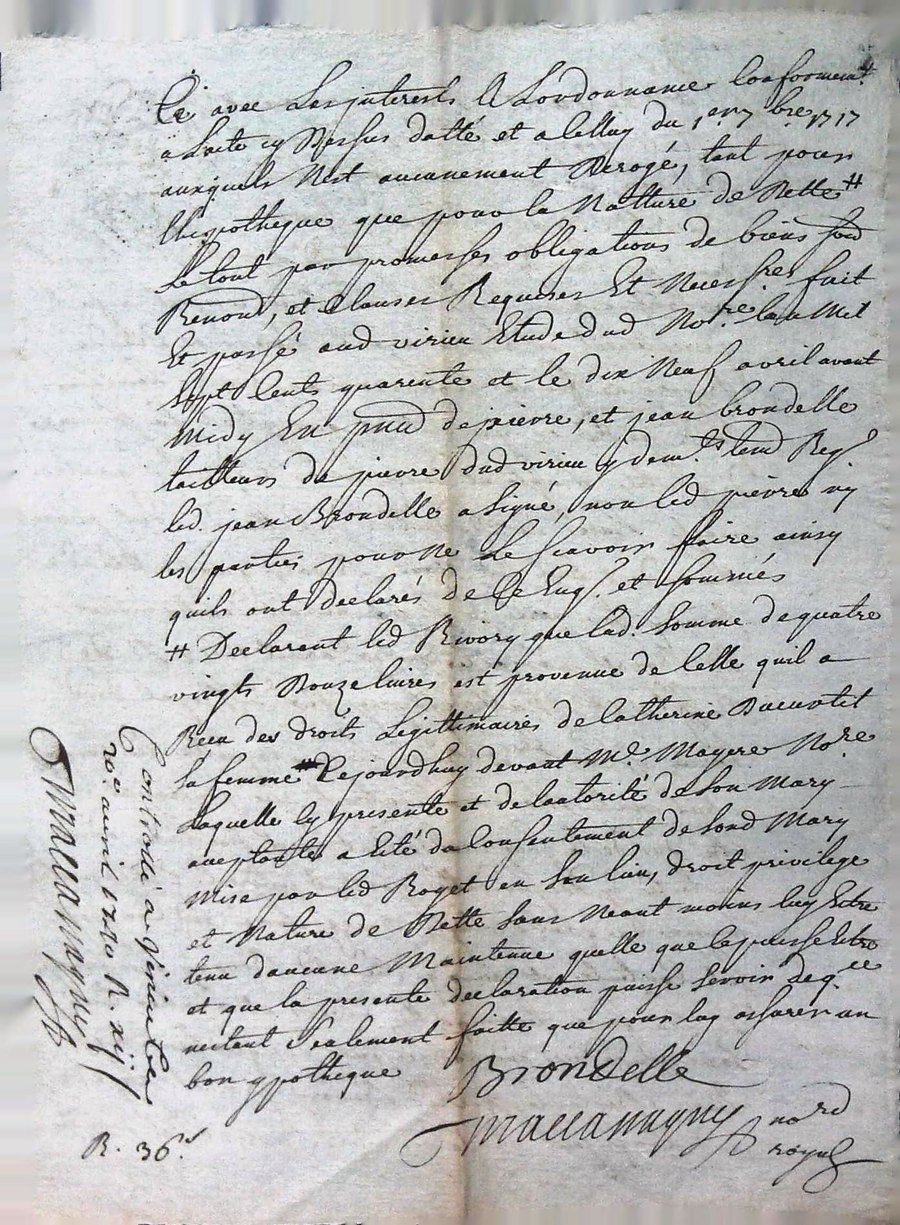 Cé avec Les jnterests A Lordonnance Conforement
a Lacte cy Dessus datté et a Celluy du 1er 7bre 1717
auxquels N'est aucunement Derogé, tant pour
lhipotheque que pour la Natture de Dette #
Le tout par promesses obligations de biens
Renond, et Clauses Requises Et Necessres fait
Et passé aud virieu Etude dud Nore Lan Mil
Sept Cents quarente et le dix Neuf avril avant
Midy En pnce de pierre, et jean brondelle
tailleurs de pierre dud virieu y demts temd Reqs
led. jean Brondelle a signé, non led pierre ny
les parties pour ne Le scavoir faire ainsy
quils ont declarés de Ce Enqs. et sommés
# Declarant led Rivory que lad. somme de quatre
vingts Douze livres est provenue de Celle quil a
Receu des droits Légittimaires de Catherine
sa femme # Cejourdhuy devant Me. Mayere Nore
Laquelle Cy presente et de Lautorité de son Mary
aceptante a Eté du Consentement de sond Mary
Mise par led Roget en son lieu, droit privilege
et Nature de Dette sans Neant moins luy Estre
tenu daucune Maintenue quelle que Ce puisse Estre
et que la presente declaration puisse servoir de qce
nestant seulement faitte que pour luy assurer un
bon ypotheque
Brondelle
Maccamagny nore
royal
Controllé a Virieu Le
20e avril 1740 R. xij s
Maccamagny
R. 36s